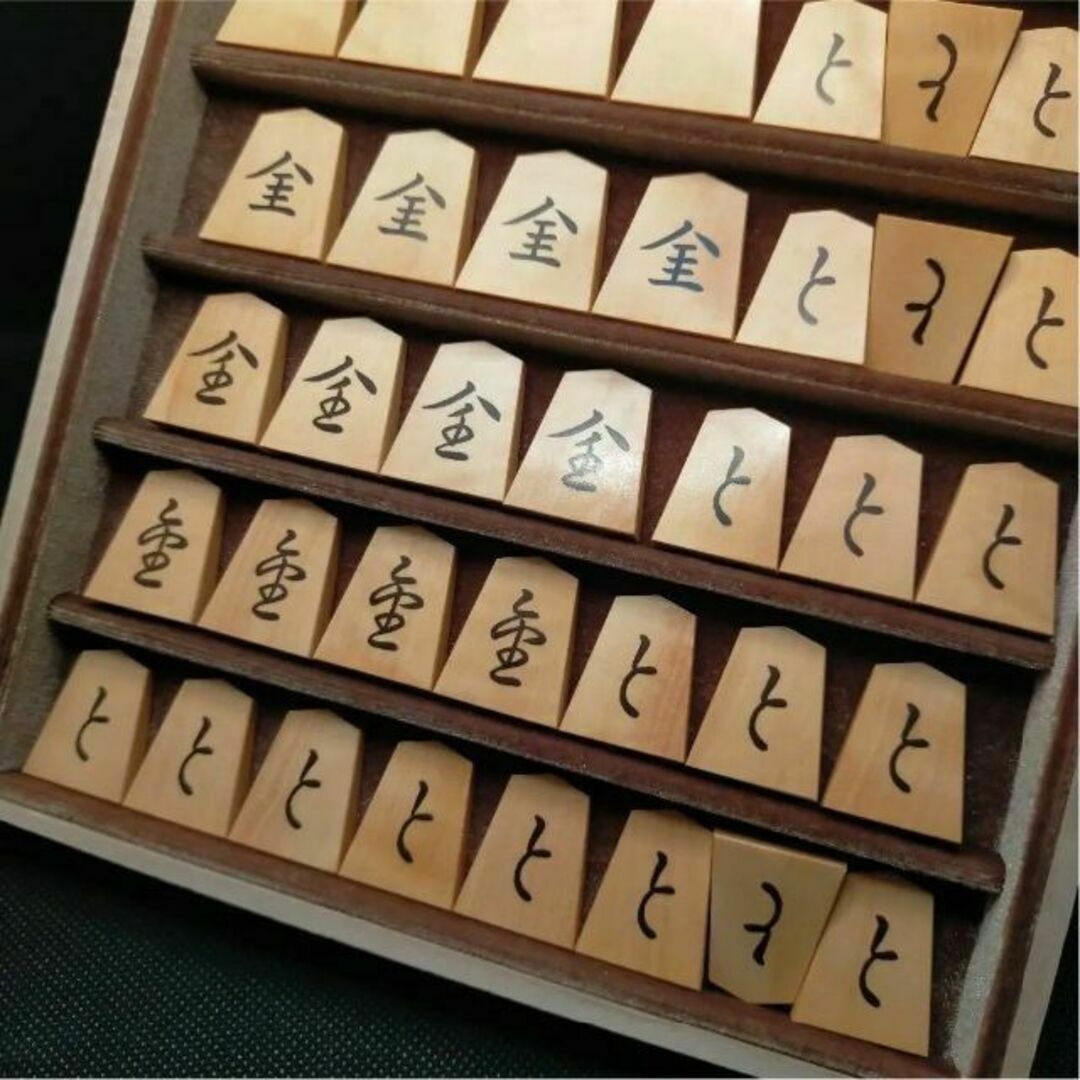 と と と
全 全 全 全 と と と
全 全 全 全 と と と
金 金 金 金 と と と
と と と と と と と と